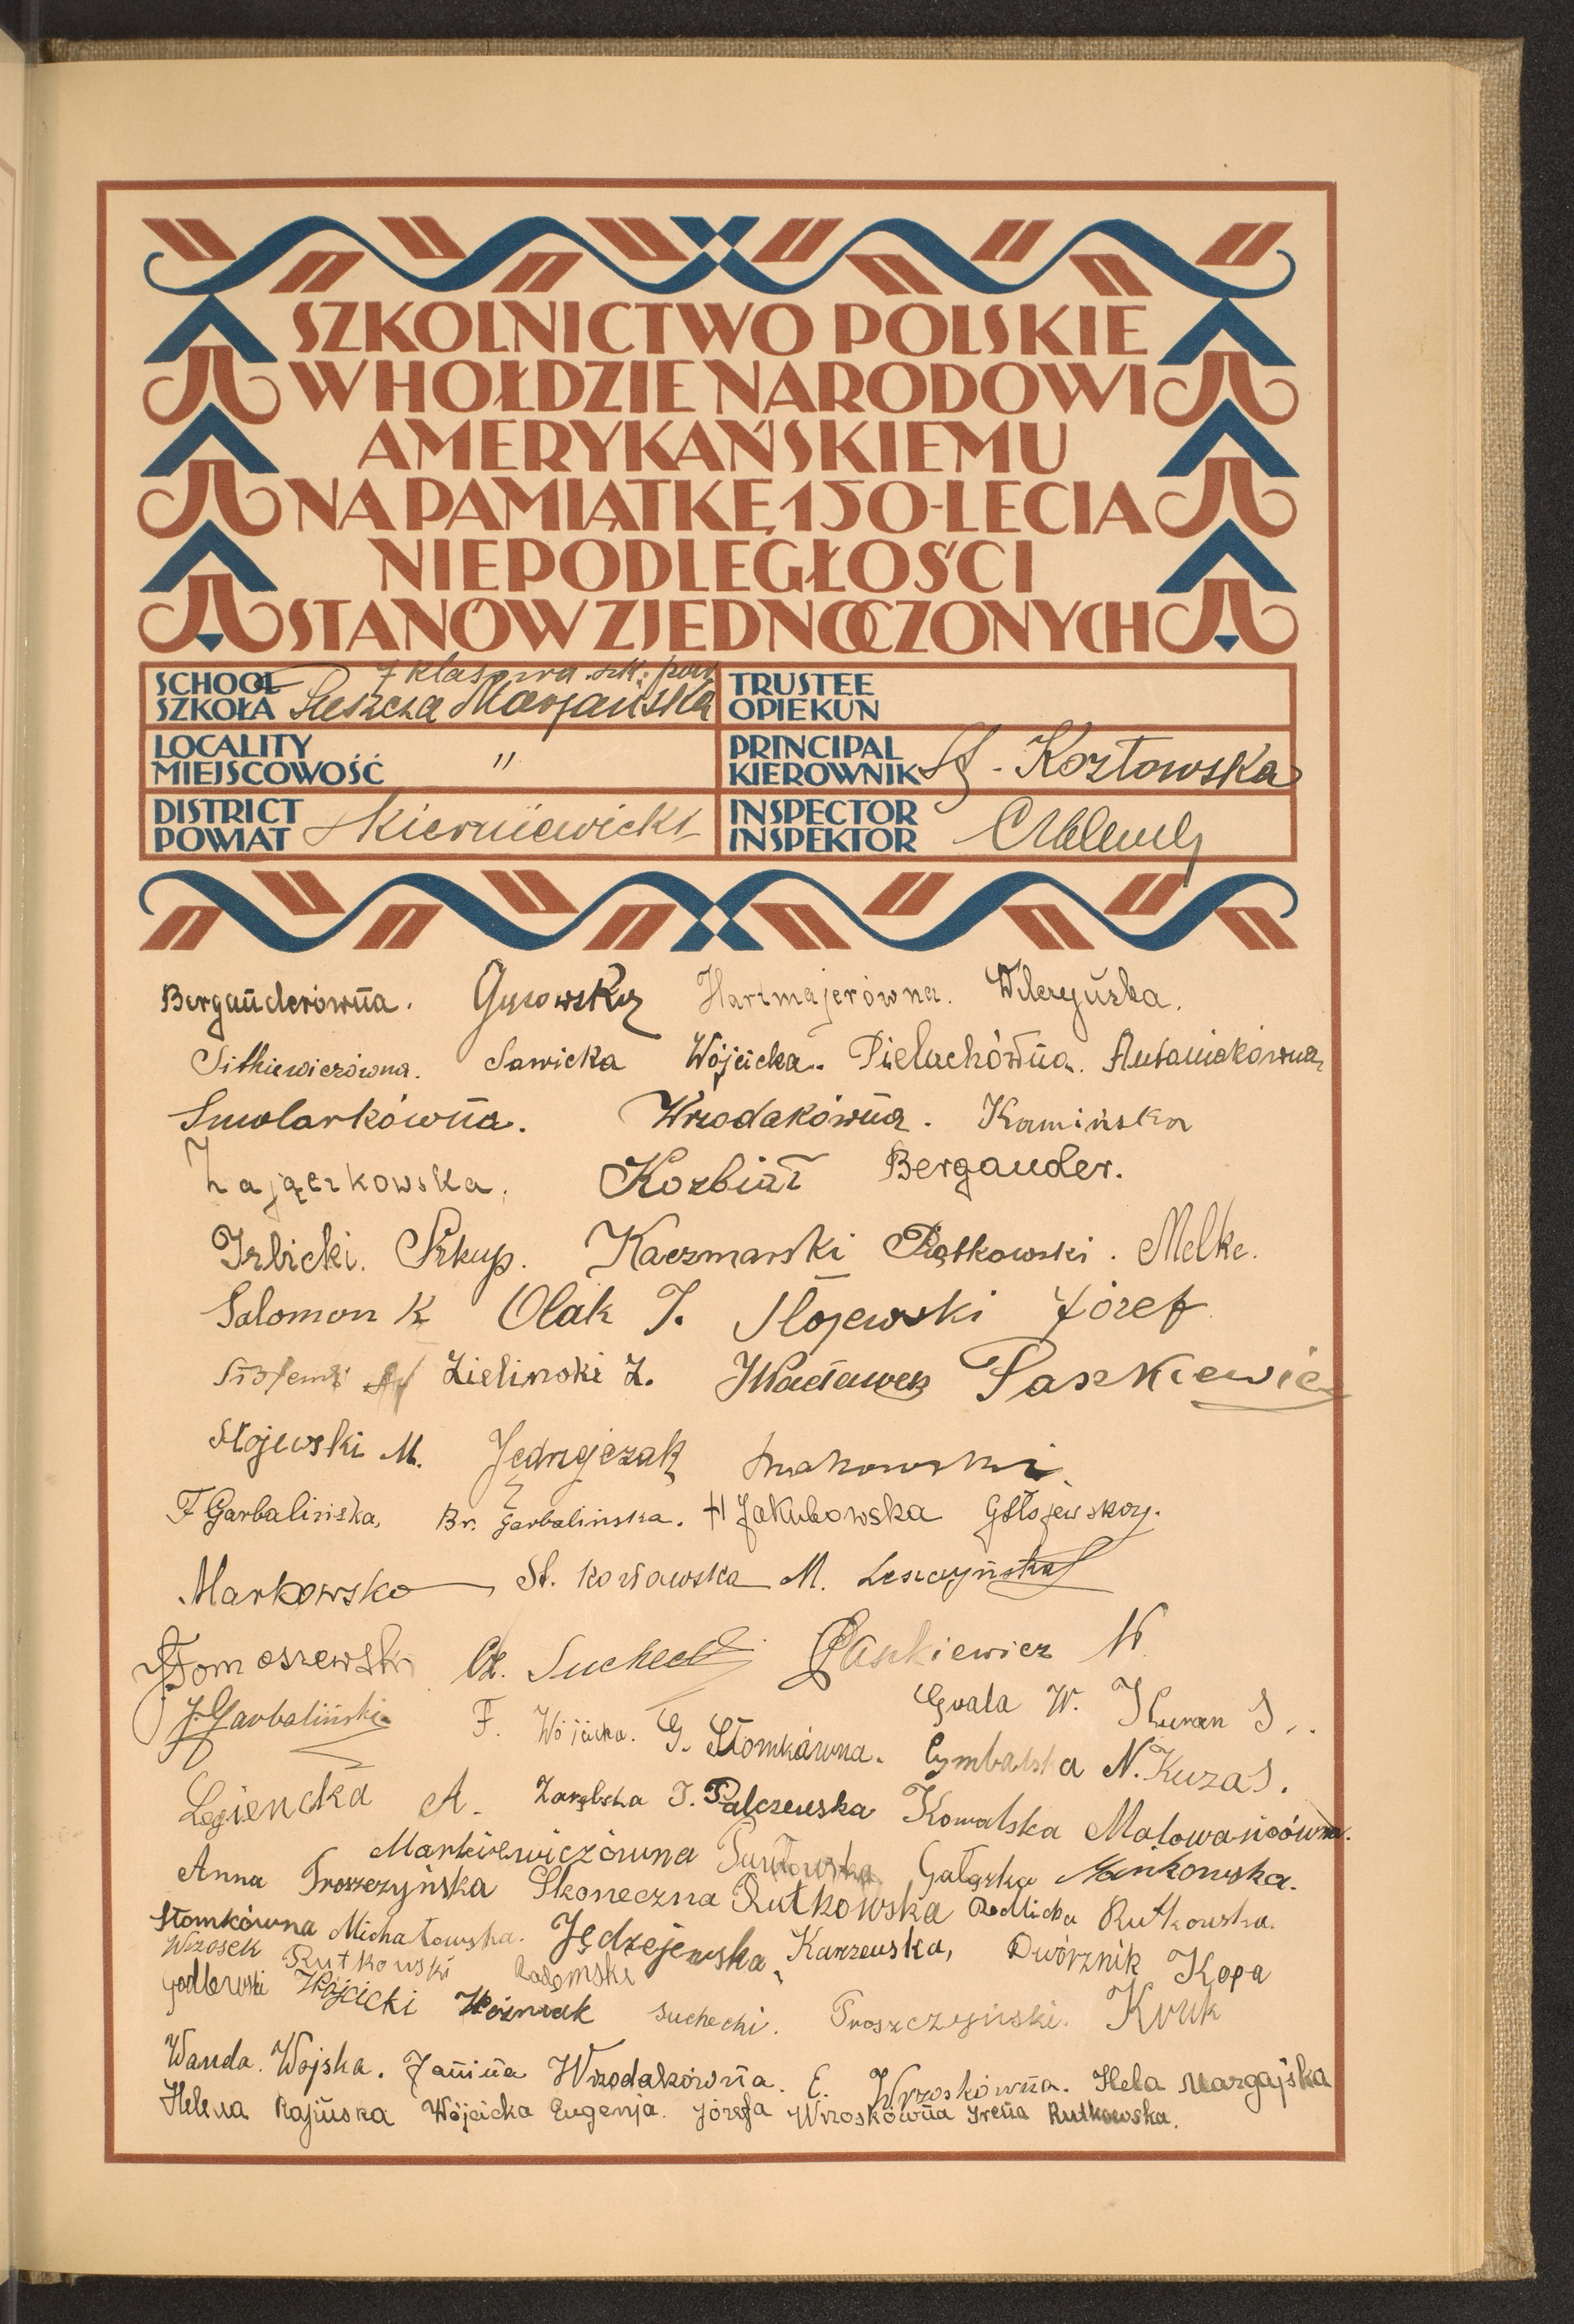 SZKOLNICTWO POLSKIE
W HOŁDZIE NARODOWI
AMERYKAŃSKIEMU
NA PAMIĄTKĘ 150-LECIA
NIEPODLEGŁOŚCI
STANÓW ZJEDNOCZONYCH
SCHOOL
SZKOŁA
7 klasowa szk. pow.
Puszcza Marjańska
TRUSTEE
OPIEKUN
LOCALITY
MIEJSCOWOŚĆ
"
PRINCIPAL
KIEROWNIK
St. Kozłowska
DISTRICT
POWIAT
Skierniewicki
INSPECTOR
INSPEKTOR
Berganderówna. Gąsowska Hartmajerówna. Wilczyńska.
Sitkiewiczówna. Sawicka Wójcicka. Pieluchówna. Antoniakówna
Smolarkówna. Wrzodakówna. Kamińska
Zajączkowska. Kozbiał Bergander.
Izbicki. Szkup. Kaczmarski Piątkowski. Melke.
Salomon K Olak J. Słojewski Józef
Zielinski Z. Wacławek Paszkiewicz
Słojewski M. Jędrzejczak Makowski
F Garbalińska, Br. Garbalinska. H Jakubowska G Słojewskaz.
Markowska St. Kozłowska M. Leszczyńska
Tomaszewski Cz. Suchecki Paszkiewicz W.
J. Garbaliński F. Wójcicka. G. Słomkówna. Gwala W.
Cymbalska N. Kuza S.
Legiencka A. Zarębska J. Palczewska Kowalska Malowanioówna.
Markiewiczówna Pawłowska Gałązka Mańkowska.
Anna Troszczyńska Skoneczna Rutkowska Redlicka Rutkowska.
Słomkówna Michałowska. Jędrzejewska, Karzewska, Dwórznik Kopa
Wrzosek Rutkowski Radomski
Godlewski Wójcicki Woźniak Suchecki. Troszczyński. Kruk
Wanda Wojska. Janina Wrzodakówna. E. Wrzoskówna. Hela Margajska
Helena Rajuska Wójcicka Eugenja. Józefa Wrzoskówna Irena Rutkowska.